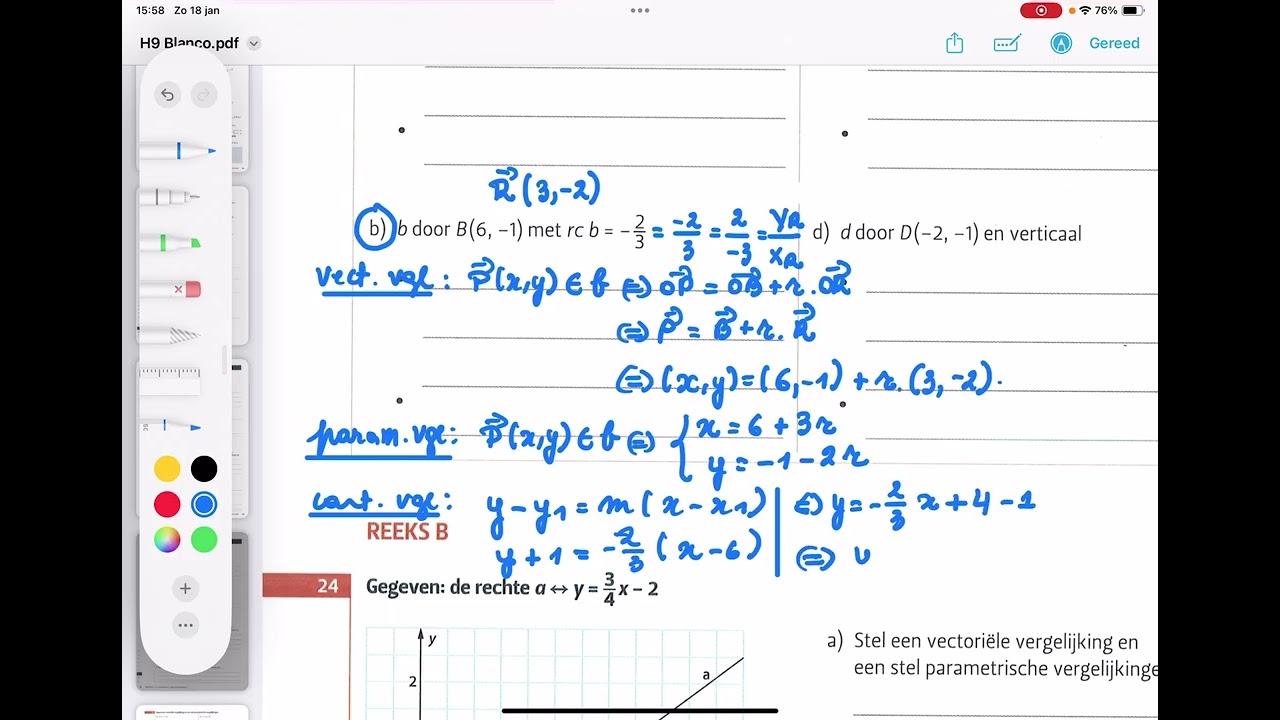 15:58 Zo 18 jan
76%
H9 Blanco.pdf
Gereed
R⃗ (3,-2)
b) b door B(6, −1) met rc b = −2/3 = -2/3 = 2/-3 = yR/xR
d) d door D(−2, −1) en verticaal
vect. vgl: P⃗(x,y) ∈ b ⇔ OP⃗ = OB⃗ + r. OR⃗
⇔ P⃗ = B⃗ + r. R⃗
⇔ (x,y) = (6,-1) + r. (3,-2).
param. vgl: P⃗(x,y) ∈ b ⇔ { x = 6 + 3r
y = -1 - 2r
cart. vgl: y - y1 = m (x - x1)
y + 1 = -2/3 (x - 6)
⇔ y = -2/3 x + 4 - 1
⇔
REEKS B
24 Gegeven: de rechte a ↔ y = 3/4 x − 2
y
2
a
a) Stel een vectoriële vergelijking en
een stel parametrische vergelijkinge